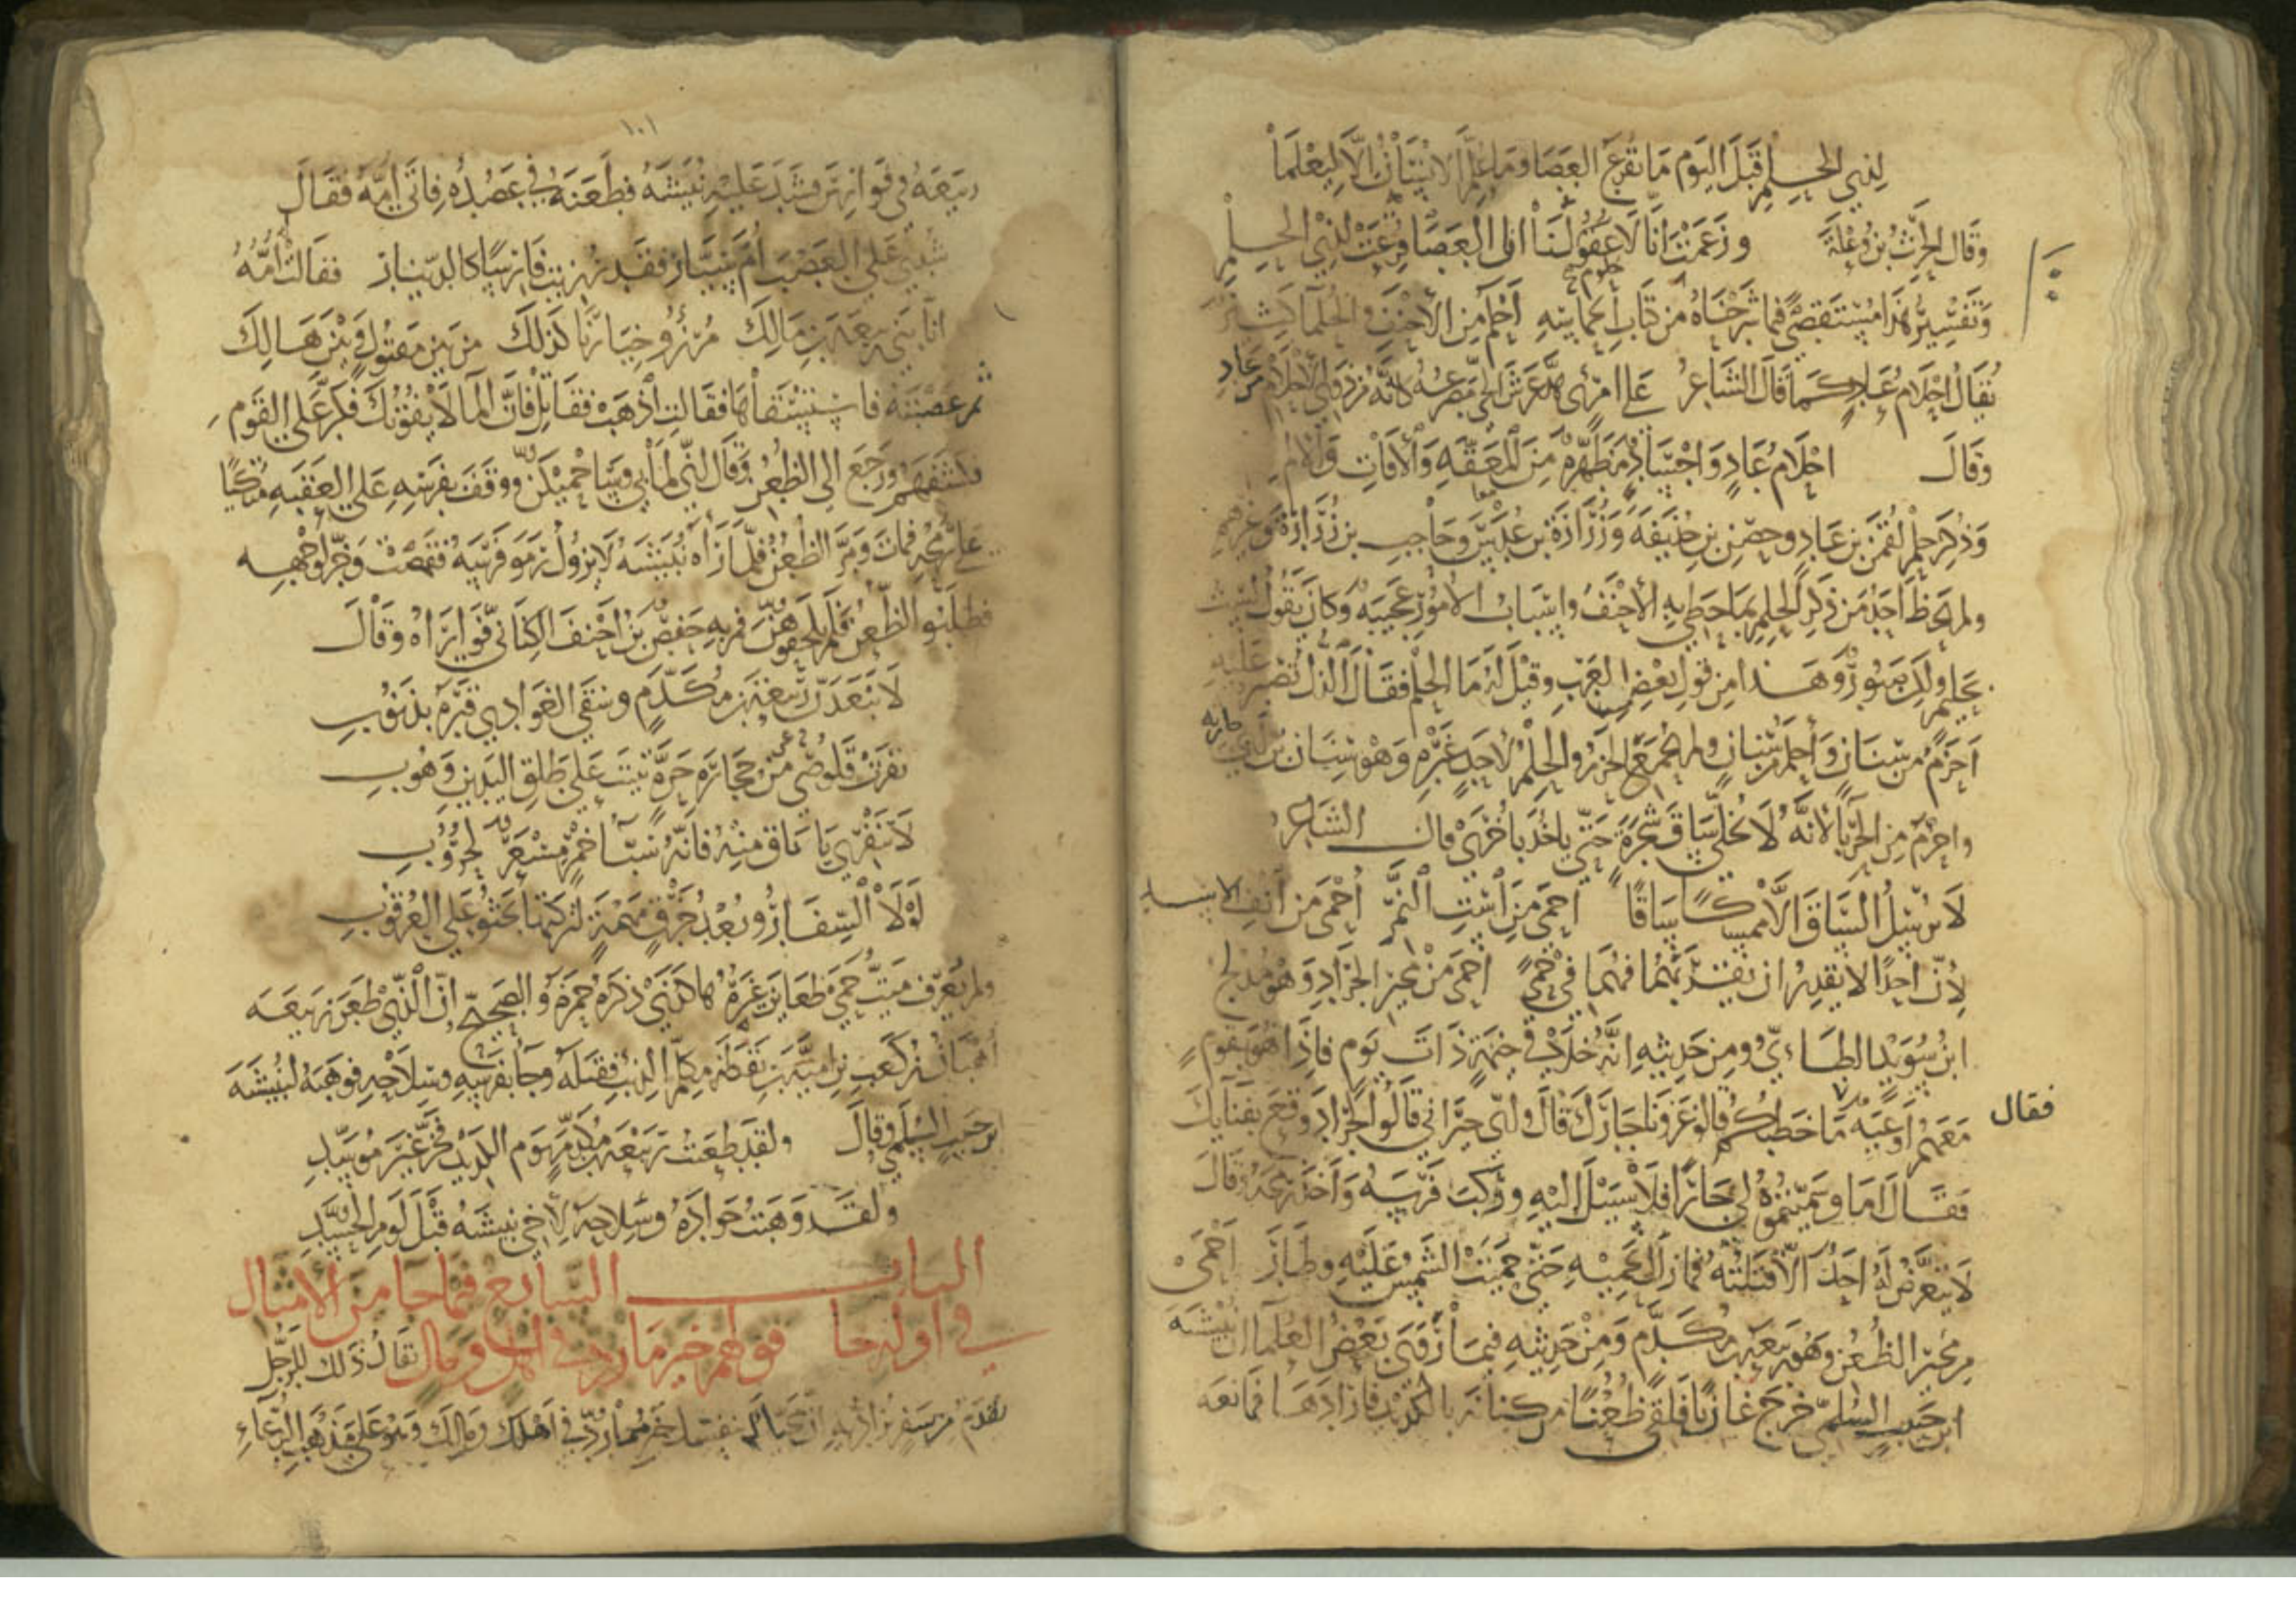 لذي الحلم قبل اليوم ما تقرع العصا وما علم الانسان الا ليعلما
وقال الحرث بن وعلة وزعمت انا لا عقول لنا ان العصا قرعت لذي الحلم
حلوم
وتفسير هذا مستقصى فيما شرحناه من كتاب احلم من الاحنف والحلما كثير
يقال احلام عاد كما قال الشاعر على امرئ هد عرش الحي مصرعه كانه من ذوي الاحلام من عاد
وقال احلام عاد واجساد مطهرة من المعقة والافات والاثم
وذكر حلم لقمن بن عاد وحصن بن حذيفة وزرارة بن عدس وحاجب بن زرارة وغيرهم
ولم يحظ احد من ذكر الحلم بما حظي به الاحنف واسباب الامور عجيبة وكان يقول لست
بحليم ولكن صبور وهذا من قول بعض العرب وقيل له ما الحلم فقال الذل تصبر عليه
احزم من سنان واحلم من سنان ولم يجمع الحزم والحلم لاحد غيره وهو سنان بن ابي حارثه
واحزم من الحربا لانه لا يخلي ساق شجرة حتى ياخذ باخرى قال الشاعر
لا يرسل الساق الا ممسكا ساقا احمى من است النمر احمى من انف الاسد
لان احدا لا يقدر ان يقذيهما فهما في حمى احمى من مجير الجراد وهو مدلج
ابن سويد الطاءي ومن حديثه انه خلا في خيمة ذات يوم فاذا هو بقوم
فقال
معهم اوعية ما خطبكم قالوا غزونا جارك قال واي جيراني قالوا الجراد وقع بفنايك
فقال اما وسميتموه لي جارا فلا سبيل اليه وركب فرسه واخذ رمحه وقال
لا يتعرض له احد الا قتلته فما زال يحميه حتى حميت الشمس عليه وطار احمى
من مجير الظعن وهو ربيعة بن مكدم ومن حديثه فيما روى بعض العلما ان نبيشه
ابن حبيب السلمي خرج غازيا فلقي ظعنا من كنانة بالكديد فارادها فمانعه
١٠١
ربيعة في فوارس فشد عليه نبيشة فطعنه في عضده فاتى امه فقال
شدي علي العصب ام سيار فقد رزيت فارسا كالدينار فقالت امه
انا بني ربيعة بن مالك مرزو خيارنا كذلك من بين مقتول وبين هالك
ثم عصبته فاستسقاها فقالت اذهب فقاتل فان الما لا يفوتك فكر على القوم
فكشفهم ورجع الى الظعن وقال اني لمابي وساحميكن ووقف بفرسه على العقبه متكيا
على رمحه فمات ومر الظعن فلما راه نبيشه لا يزول رموا فرسه فقمصت وخر لوجهه
فطلبوا الظعن فلم يلحقوهن فمر به حفص بن احنف الكناني فواراه وقال
لا تبعدن ربيعة بن مكدم وسقى الغوادي قبره بذنوب
نفرت قلوصي من حجارة حرة بنيت على طلق اليدين وهوب
لا تنفري يا ناق منه فانه سبا خمر مسعر لحروب
لولا السفار وبعد خرق مهمة لتركتها تحثو على العرقوب
ولم يعرف ميت حمى ظعاين غيره هاكذى ذكره حمزة والصحيح ان الذي طعن ربيعه
اهبان بن كعب بن امية بن يقظة مكلم الذيب فقتله وجا بفرسه وسلاحه فوهبه لنبيشه
بن حبيب السلمي وقال ولقد طعنت ربيعة بن مكدم يوم الكديد فخر غير موسد
ولقد وهبت جواده وسلاحه لاخي نبيشه قبل لوم الحسد
الباب السابع فيما جا من الامثال
في اوله خا قولهم خير ما رد في اهل ومال يقال ذلك للرجل
يقدم من سفر فى اهلك ومالك وهو على مذهب الدعاء